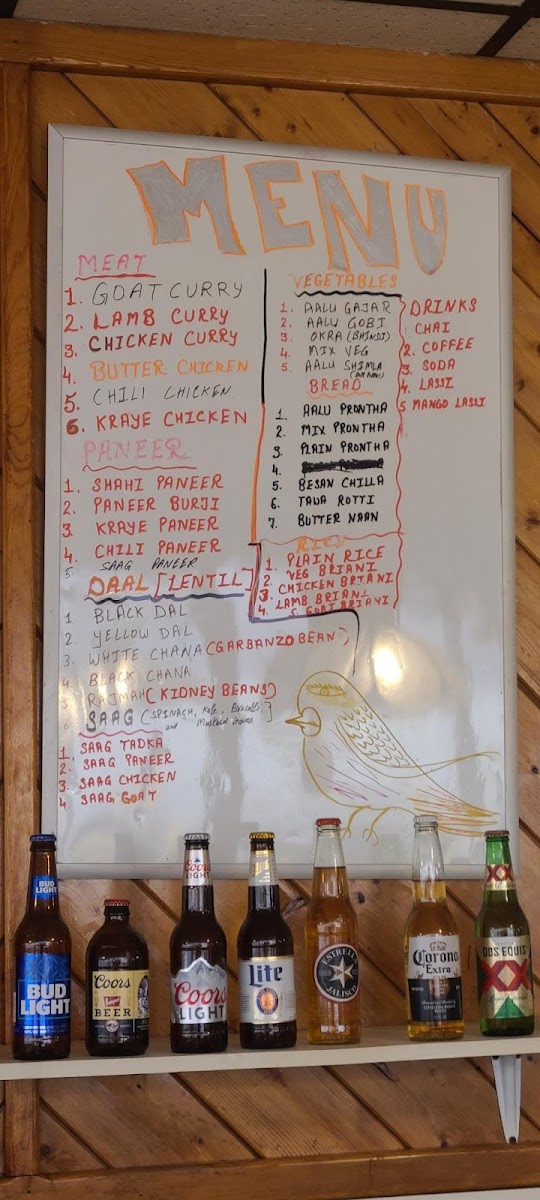 MENU
MEAT
1. GOAT CURRY
2. LAMB CURRY
3. CHICKEN CURRY
4. BUTTER CHICKEN
5. CHILI CHICKEN
6. KRAYE CHICKEN
PANEER
1. SHAHI PANEER
2. PANEER BURJI
3. KRAYE PANEER
4. CHILI PANEER
5. SAAG PANEER
DAAL [LENTIL]
1 BLACK DAL
2 YELLOW DAL
3. WHITE CHANA (GARBANZO BEAN)
4 BLACK CHANA
5 RAJMAH (KIDNEY BEANS)
6 SAAG (SPINACH, Kale, Broccoli
and Mustard
1 SAAG TADKA
2. SAAG PANEER
3. SAAG CHICKEN
4 SAAG GOAT
VEGETABLES
1. AALU GAJAR
2. AALU GOBI
3. OKRA (BHINDI)
4 MIX VEG
5 AALU SHIMLA
BREAD
1. AALU PRONTHA
2. MIX PRONTHA
3. PLAIN PRONTHA
4.
5. BESAN CHILLA
6. TAVA ROTTI
7. BUTTER NAAN
RICE
1. PLAIN RICE
2. VEG BRIANI
3. CHICKEN BRIANI
4. LAMB BRIANI
5. GOAT BRIANI
DRINKS
CHAI
2. COFFEE
3. SODA
4. LASSI
5 MANGO LASSI
BUD LIGHT
BUD LIGHT
Coors
BEER
Coors LIGHT
Coors
LIGHT
Lite
ESTRELLA
JALISCO
Corona
Extra
XX
DOS EQUIS
XX